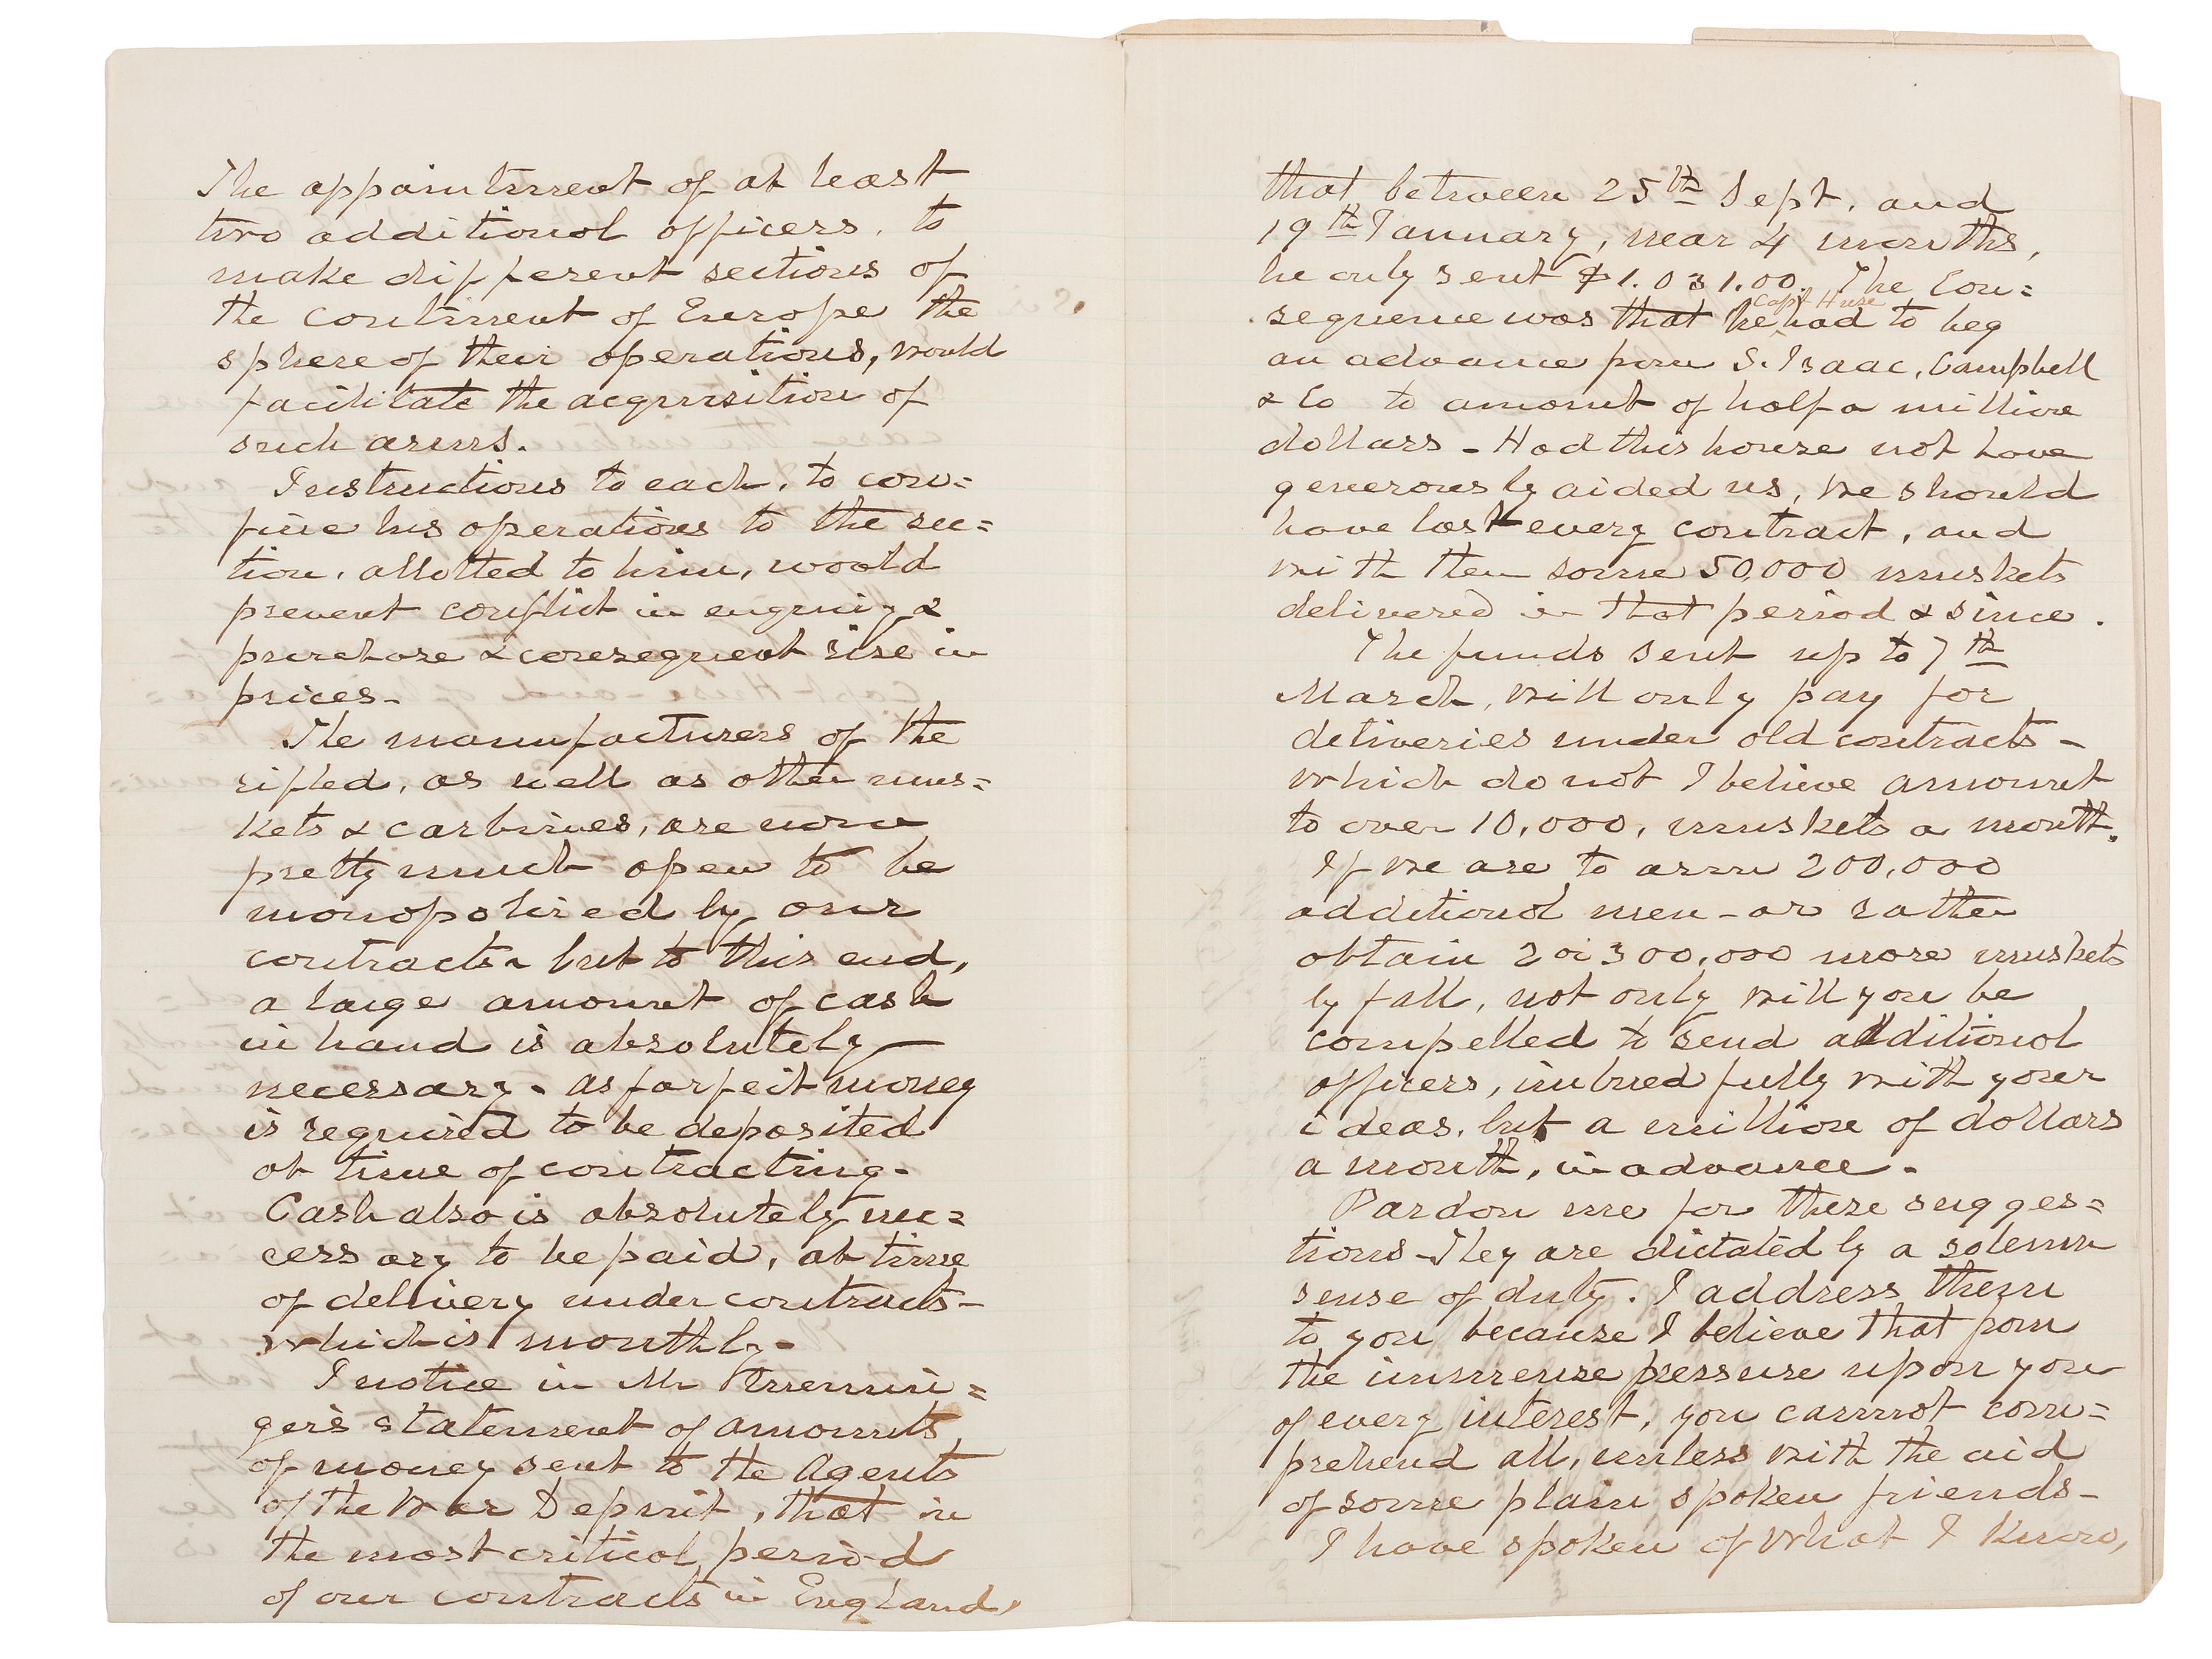 The appointment of at least
two additional officers, to
make different sections of
the continent of Europe the
sphere of their operations, would
facilitate the acquisition of
such arms.
Instructions to each, to con=
fine his operations to the sec=
tion, allotted to him, would
prevent conflict in enquiry &
purchase & consequent rise in
prices -
The manufacturers of the
rifled, as well as other mus=
kets & carbines, are now
pretty much open to be
monopolized by our
contracts - but to this end,
a large amount of cash
in hand is absolutely
necessary - as forfeit money
is required to be deposited
at time of contracting -
Cash also is absolutely nec=
essary to be paid, at time
of delivery under contracts -
which is monthly -
I notice in Mr Memmin=
ger's statement of amounts
of money sent to the Agents
of the War Depmt, that in
the most critical period
of our contracts in England,
that between 25th Sept. and
19th January, near 4 months,
he only sent $1.031.00. The Con=
Capt Huse
sequence was that he had to beg
an advance from S. Isaac, Campbell
& Co to amount of half a million
dollars - Had this house not have
generously aided us, we should
have lost every contract, and
with them some 50,000 muskets
delivered in that period & since.
The funds sent up to 7th
March, will only pay for
deliveries under old contracts -
which do not I believe amount
to over 10,000, muskets a month.
If we are to arm 200,000
additional men - or rather
obtain 2 or 300,000 more muskets
by fall, not only will you be
compelled to send additional
officers, imbued fully with your
ideas, but a million of dollars
a month, in advance -
Pardon me for these sugges=
tions - They are dictated by a solemn
sense of duty. I address them
to you because I believe that from
the immense pressure upon you
of every interest, you cannot com=
prehend all, unless with the aid
of some plain spoken friends -
I have spoken of what I know,